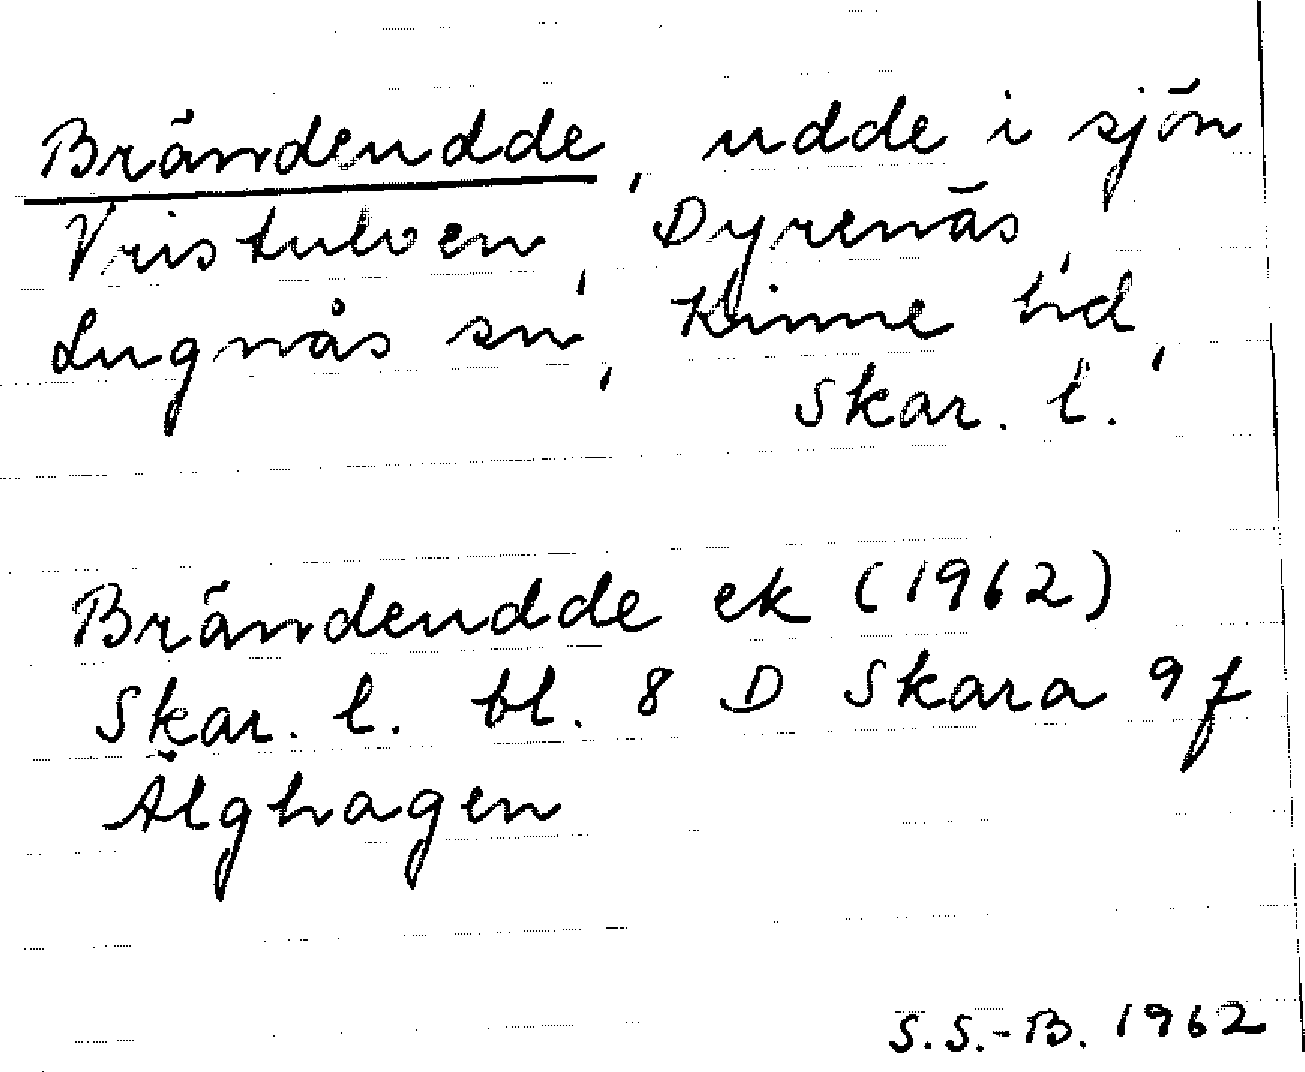 Brändeudde, udde i sjön
Vristulven, Dyrenäs,
Lugnås sn, Kinne hd,
Skar. l.
Brändeudde ek (1962)
Skar. l. bl. 8 D Skara 9f
Älghagen
S.S.-B. 1962